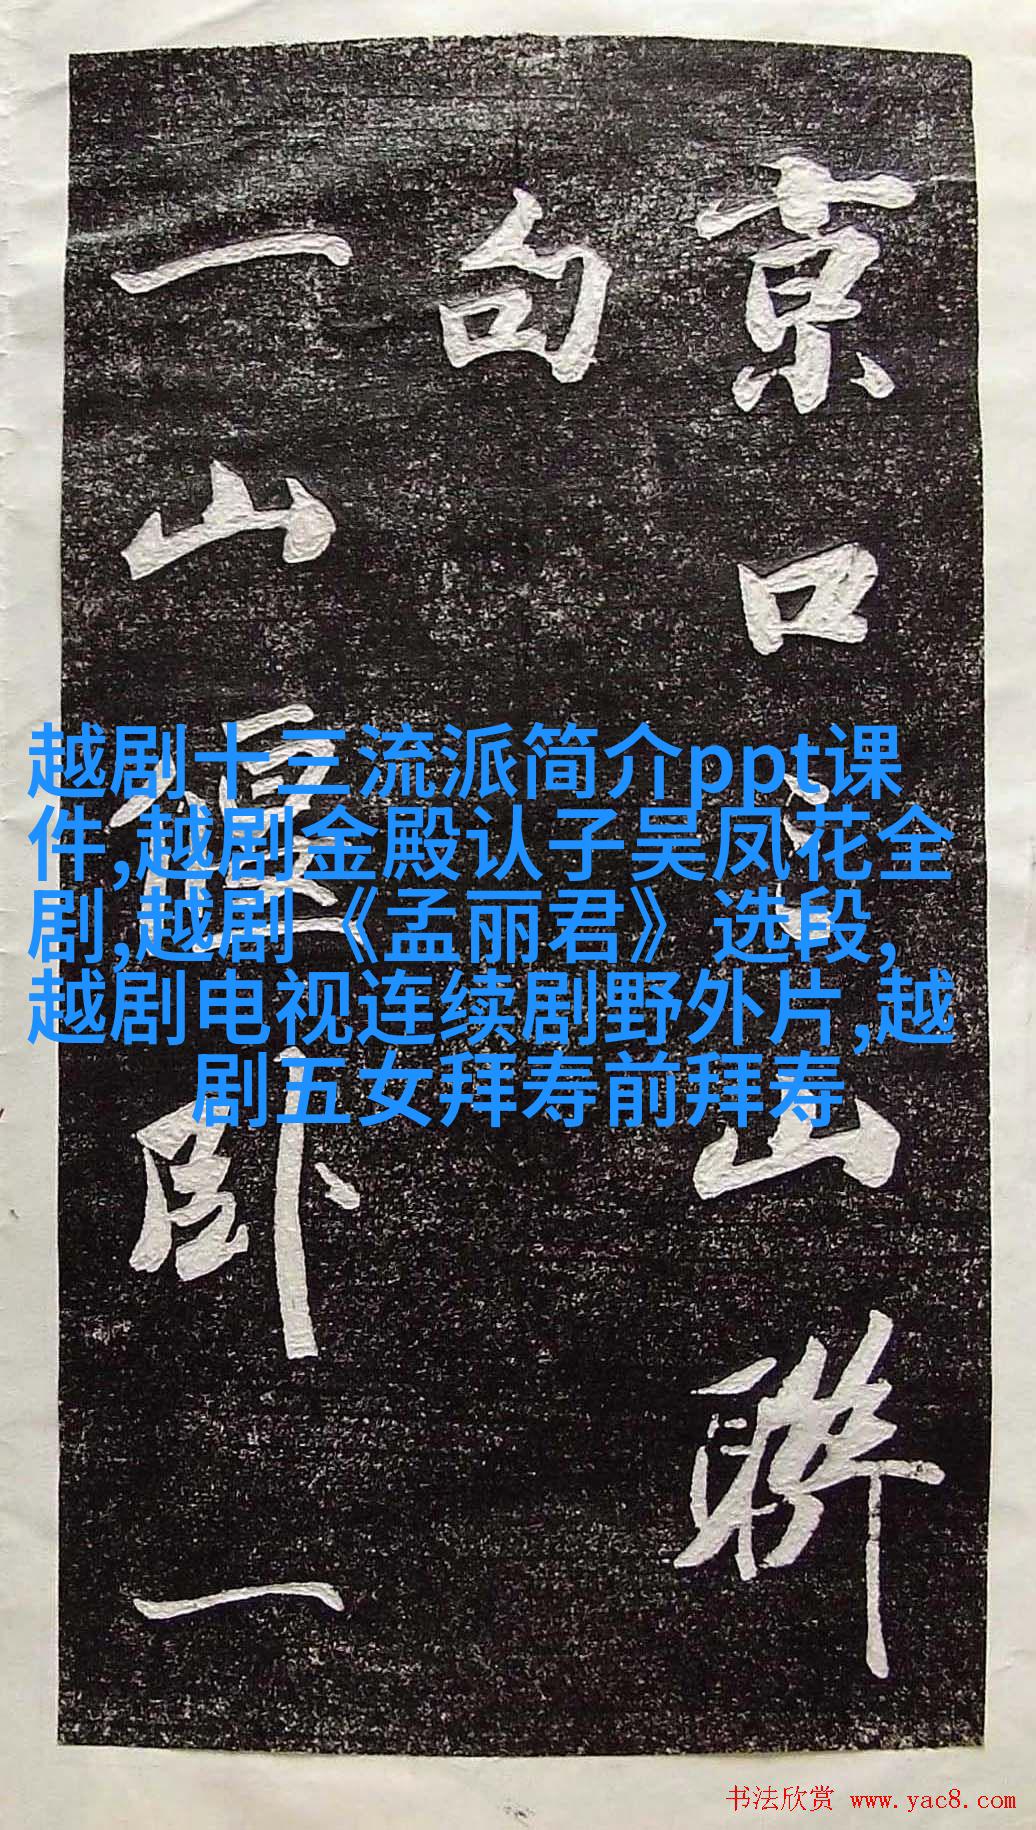 京口三山聯
句
一山堰卧一
越剧十三流派简介ppt课
件,越剧金殿认子吴凤花全
剧,越剧《孟丽君》选段,
越剧电视连续剧野外片,越
剧五女拜寿前拜寿
书法欣赏 www.yac8.com